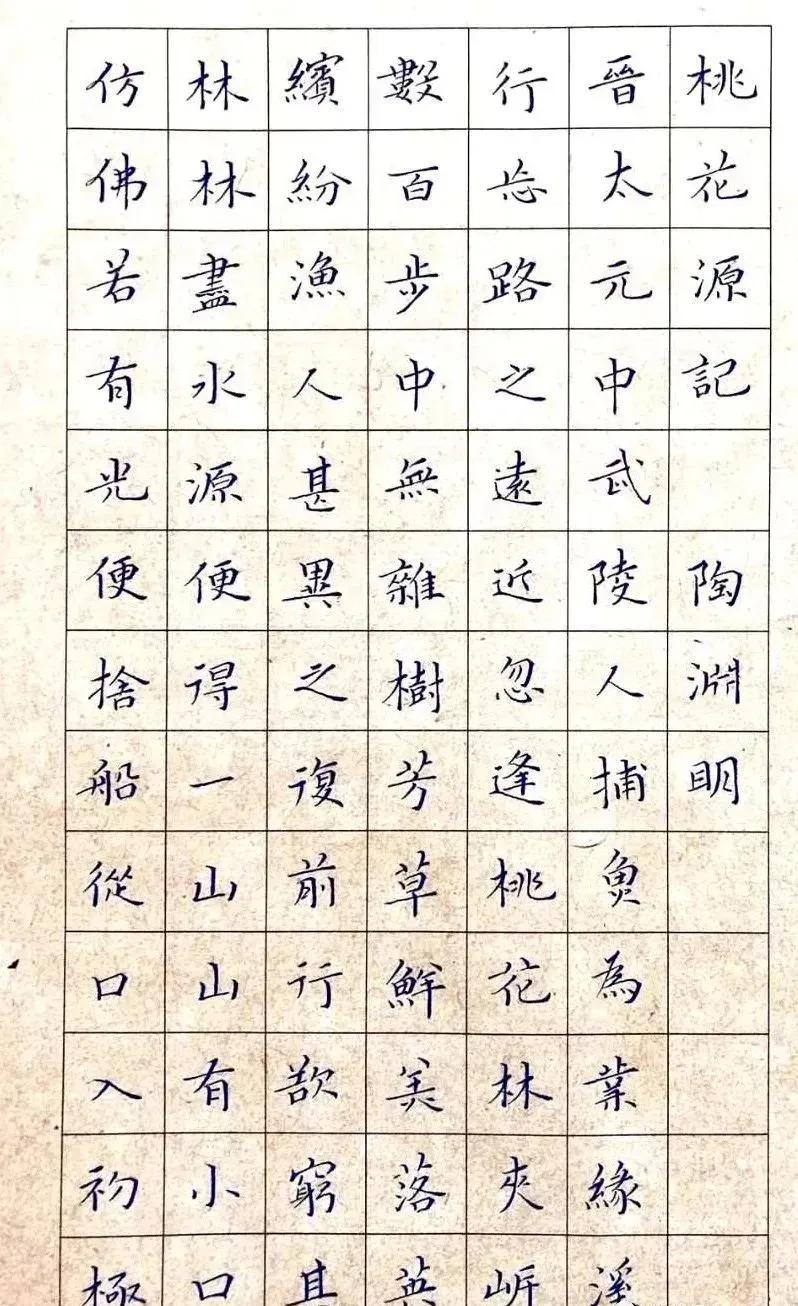 桃花源記 陶淵明
晉太元中武陵人捕魚為業緣溪
行忘路之遠近忽逢桃花林夾岍
數百步中無雜樹芳草鮮美落英
繽紛漁人甚異之復前行欲窮其
林林盡水源便得一山山有小口
仿佛若有光便捨船從口入初極